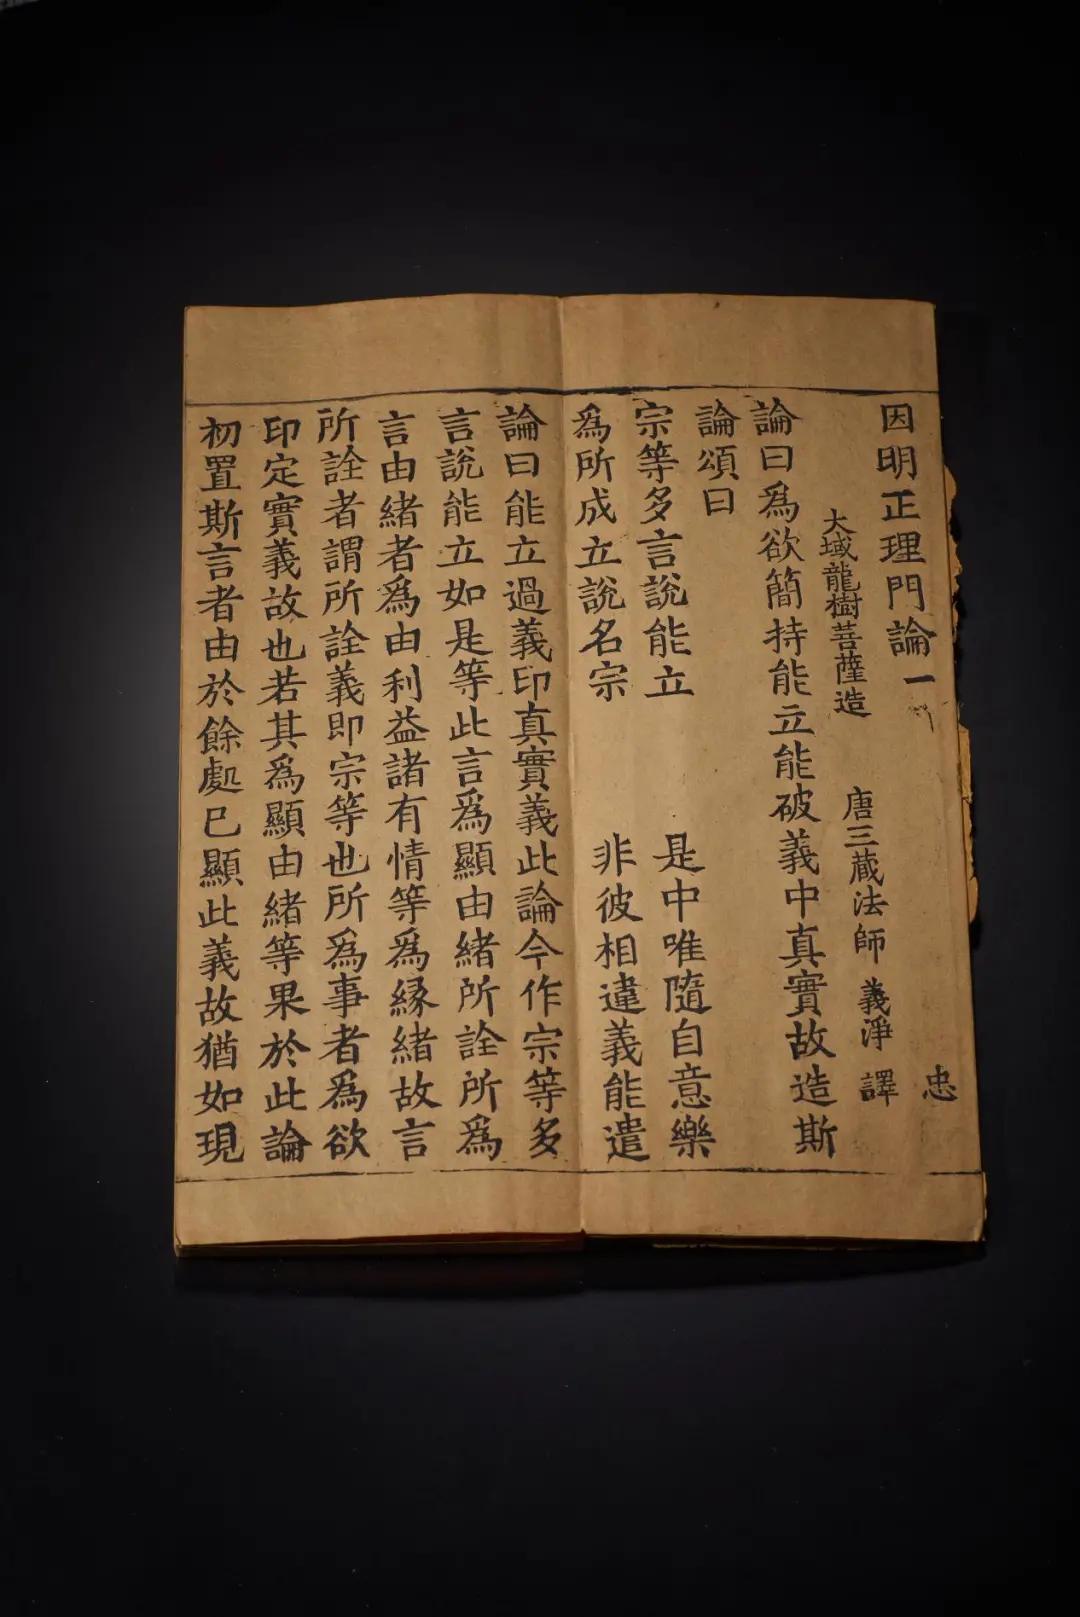 因明正理門論一 忠
大域龍樹菩薩造 唐三藏法師 義淨 譯
論曰爲欲簡持能立能破義中真實故造斯
論頌曰
宗等多言說能立 是中唯隨自意樂
爲所成立說名宗 非彼相違義能遣
論曰能立過義印真實義此論今作宗等多
言說能立如是等此言爲顯由緒所詮所爲
言由緒者爲由利益諸有情等爲緣緒故言
所詮者謂所詮義即宗等也所爲事者爲欲
印定實義故也若其爲顯由緒等果於此論
初置斯言者由於餘處已顯此義故猶如現